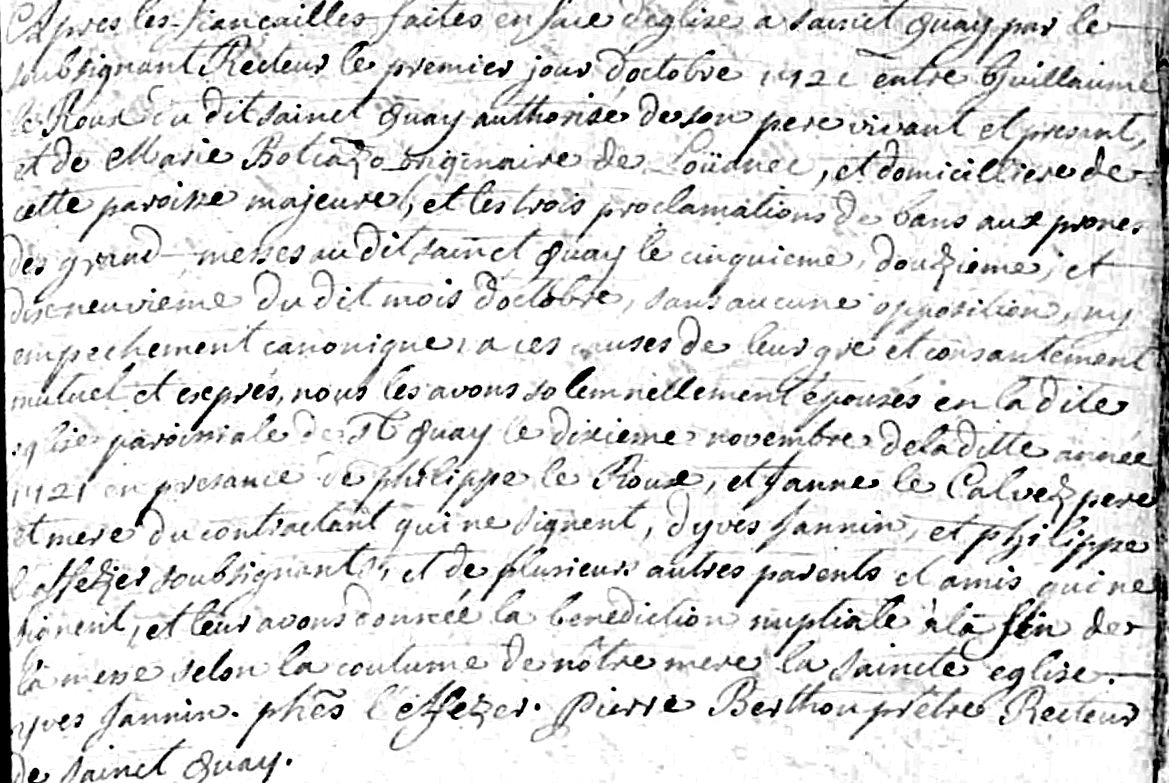 Apres les fiancailles faites en face d'eglise a sainct Quay par le
soubsignant Recteur le premier jour d'octobre 1721 entre Guillaume
le Roux du dit sainct Quay authorisé de son pere vivant et present,
et de Marie Botcazo originaire de Loüanec, et domicilliere de
cette paroisse majeure, et les trois proclamations de bans aux prones
des grand messes au dit sainct Quay le cinquieme, douzieme, et
dixneuvieme du dit mois d'octobre, sans aucune opposition, ny
empechement canonique, a ces causes de leur gré et consantement
mutuel et exprés, nous les avons solemnellement épousés en la dite
eglise paroissiale de St Quay le dixieme novembre de la ditte année
1721 en presance de philippe le Roux, et Janne le Calvez pere
et mere du contractant qui ne signent, d'yves Jannin, et philippe
soubsignants, et de plusieurs autres parents et amis qui ne
signent, et leur avons donnée la benediction nuptiale à la fin de
la messe selon la coutume de nôtre mere la saincte eglise.
yves Jannin. phes Pierre Berthou prêtre Recteur
de sainct Quay.